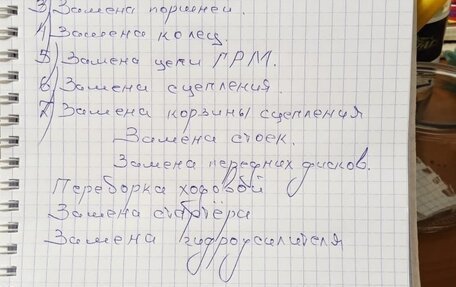 3) Замена поршней.
4) Замена колец.
5) Замена цепи ГРМ.
6) Замена сцепления.
7) Замена корзины сцепления
Замена стоек.
Замена передних дисков.
Переборка ходовой
Замена стартёра
Замена гидроусилителя